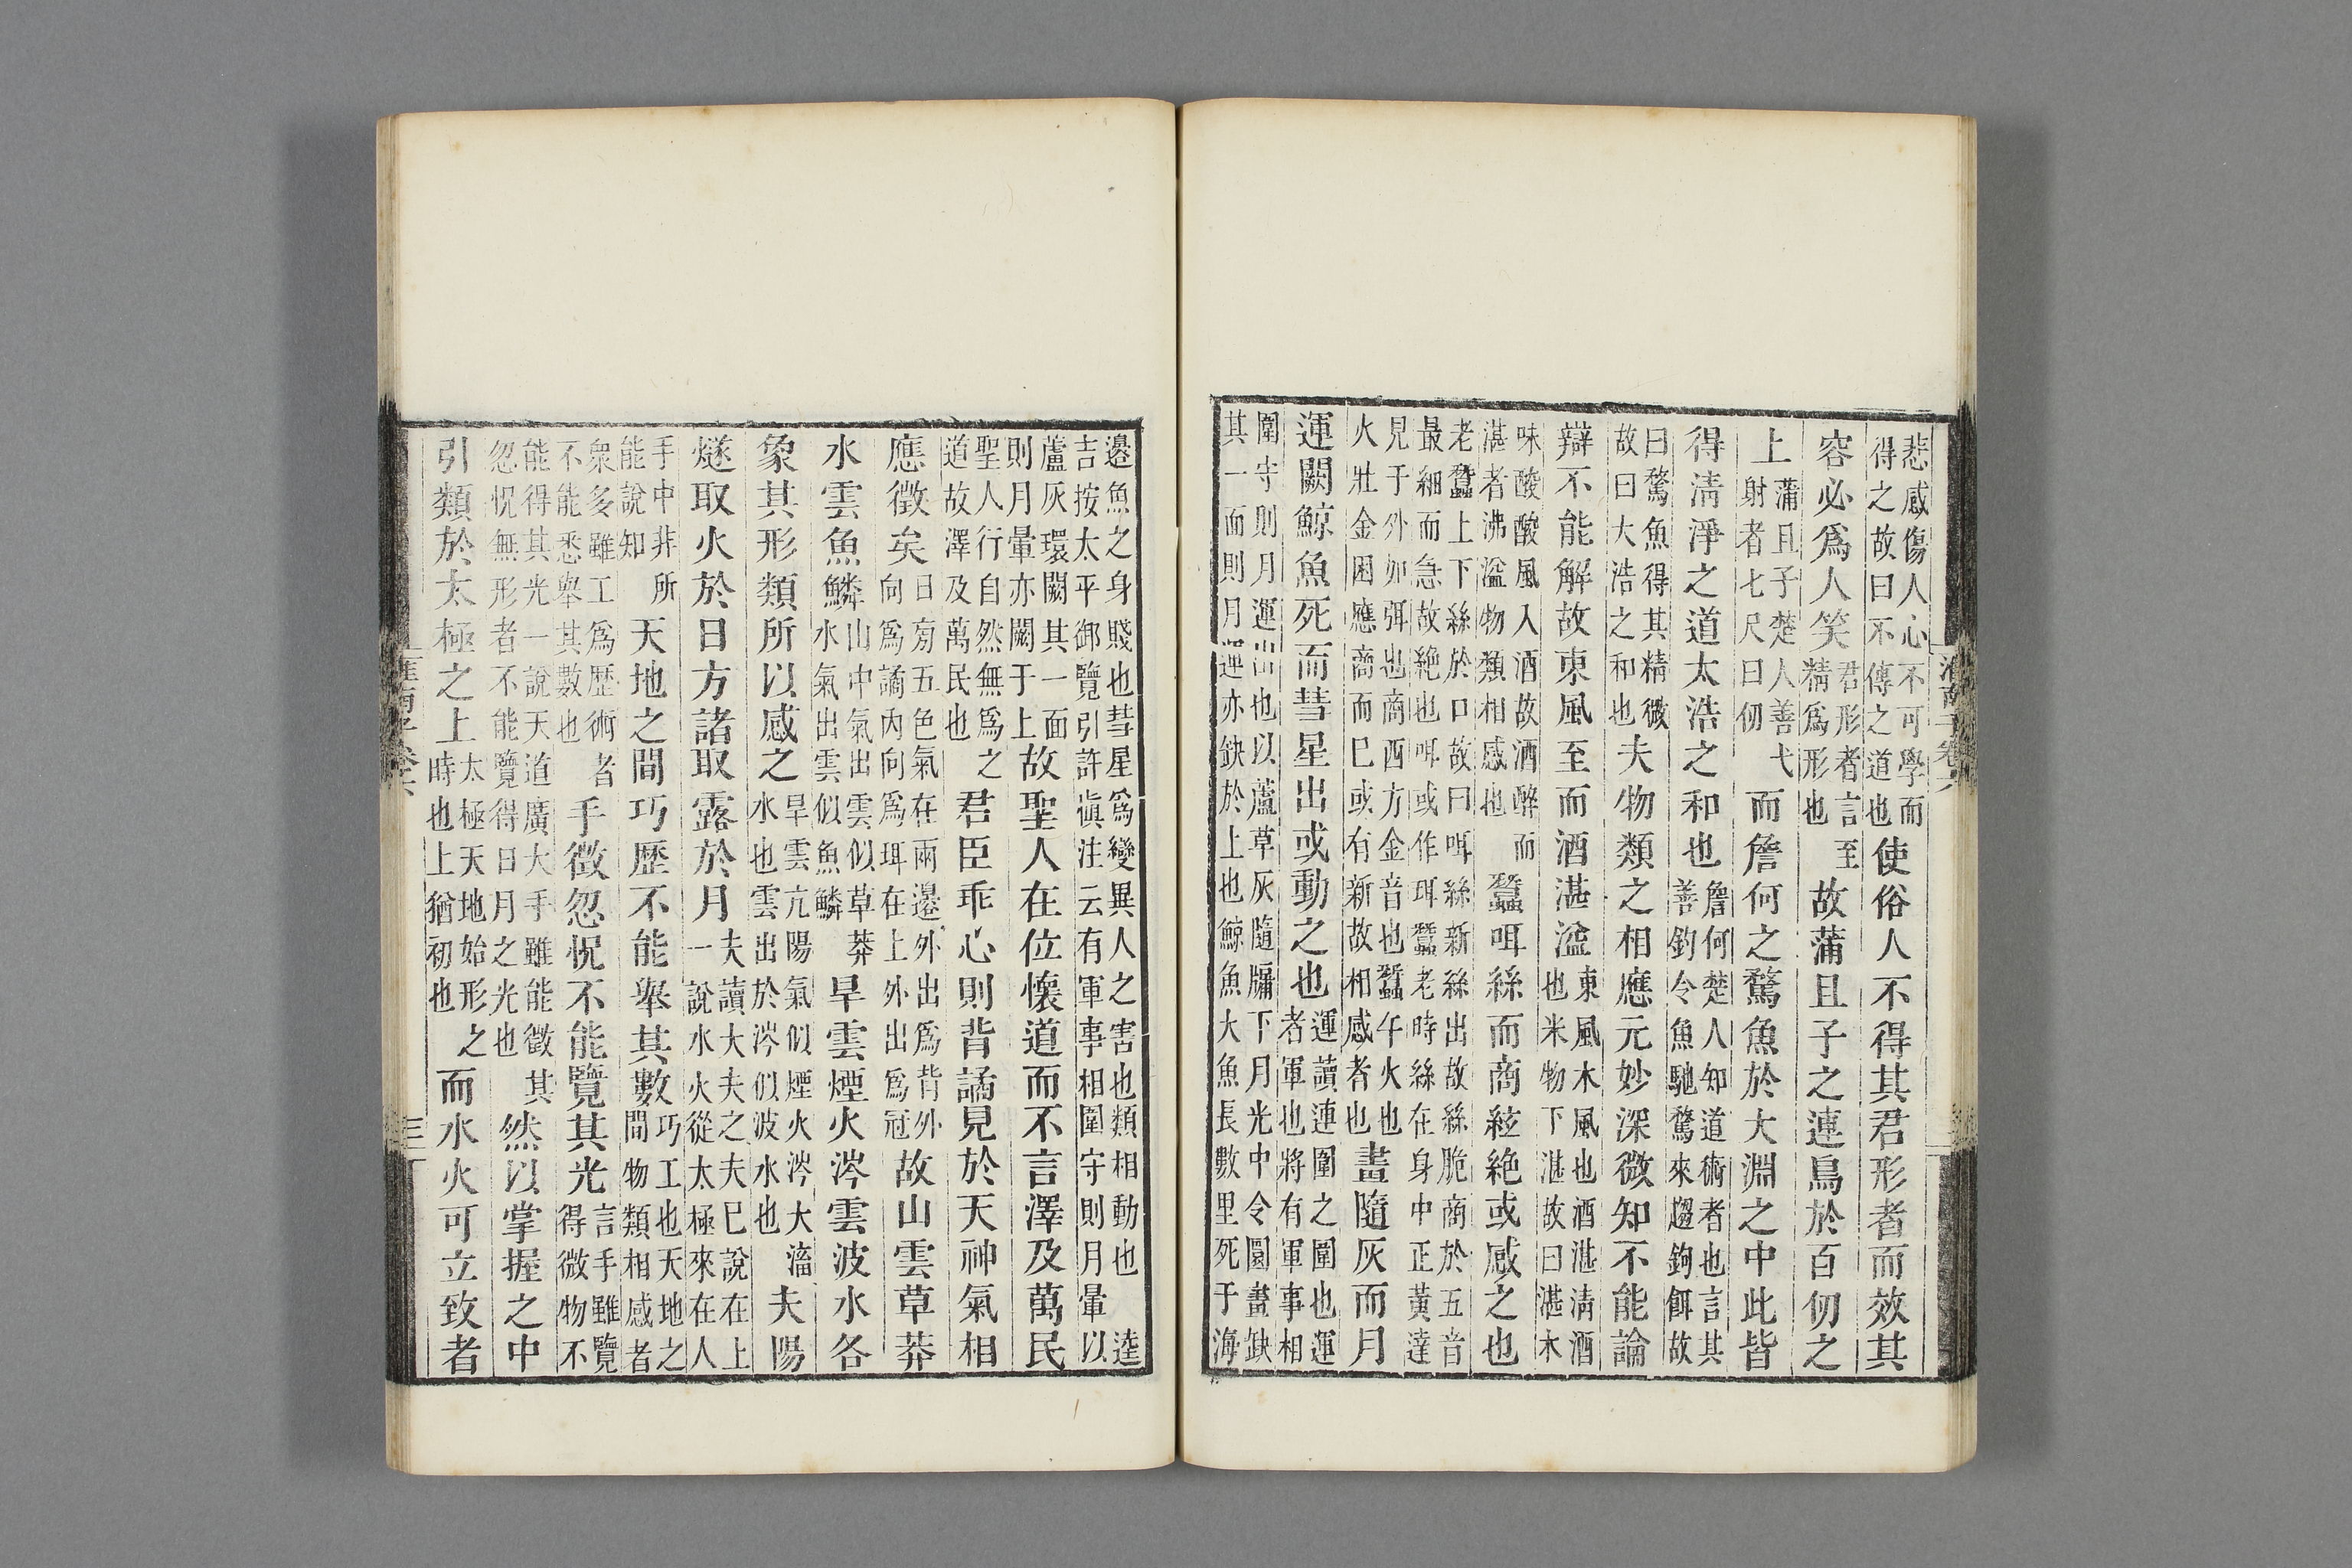 淮南子卷六
悲感傷人心不可學而得之故曰不傳之道也使俗人不得其君形者而效其
容必爲人笑君形者言至精爲形也故蒲且子之連鳥於百仞之
上蒲且子楚人善弋射者七尺曰仞而詹何之騖魚於大淵之中此皆
得淸淨之道太浩之和也詹何楚人知道術者也言其善釣令魚馳騖來趨鉤餌故
曰騖魚得其精微故曰大浩之和也夫物類之相應元妙深微知不能論
辯不能解故東風至而酒湛溢東風木風也酒湛淸酒也米物下湛故曰湛木
味酸酸風入酒故酒酢而湛者沸溢物類相感也蠶咡絲而商絃絶或感之也
老蠶上下絲於口故曰咡絲新絲出故絲脆商於五音最細而急故絶也咡或作珥蠶老時絲在身中正黃達
見于外如弭也商西方金音也蠶午火也火壯金困應商而已或有新故相感者也畫隨灰而月
運闕鯨魚死而彗星出或動之也運讀連圍之圍也運者軍也將有軍事相
圍守則月運出也以蘆草灰隨牖下月光中令圜畫缺其一面則月運亦缺於上也鯨魚大魚長數里死于海
邉魚之身賤也彗星爲變異人之害也類相動也 逵吉按太平御覽引許愼注云有軍事相圍守則月暈以
蘆灰環闕其一面則月暈亦闕于上故聖人在位懷道而不言澤及萬民
聖人行自然無爲之道故澤及萬民也君臣乖心則背譎見於天神氣相
應徵矣日旁五色氣在兩邉外出爲背外向爲譎內向爲珥在上外出爲冠故山雲草莽
水雲魚鱗山中氣出雲似草莽水氣出雲似魚鱗旱雲煙火涔雲波水各
象其形類所以感之旱雲亢陽氣似煙火涔大滀水也雲出於涔似波水也夫陽
燧取火於日方諸取露於月夫讀大夫之夫已說在上一說水火從太極來在人
手中非所能說知天地之間巧歷不能舉其數巧工也天地之間物類相感者
衆多雖工爲歷術者不能悉舉其數也手徵忽怳不能覽其光言手雖覽得微物不
能得其光一說天道廣大手雖能徵其忽怳無形者不能覽得日月之光也然以掌握之中
引類於太極之上太極天地始形之時也上猶初也而水火可立致者
淮南子卷六
三